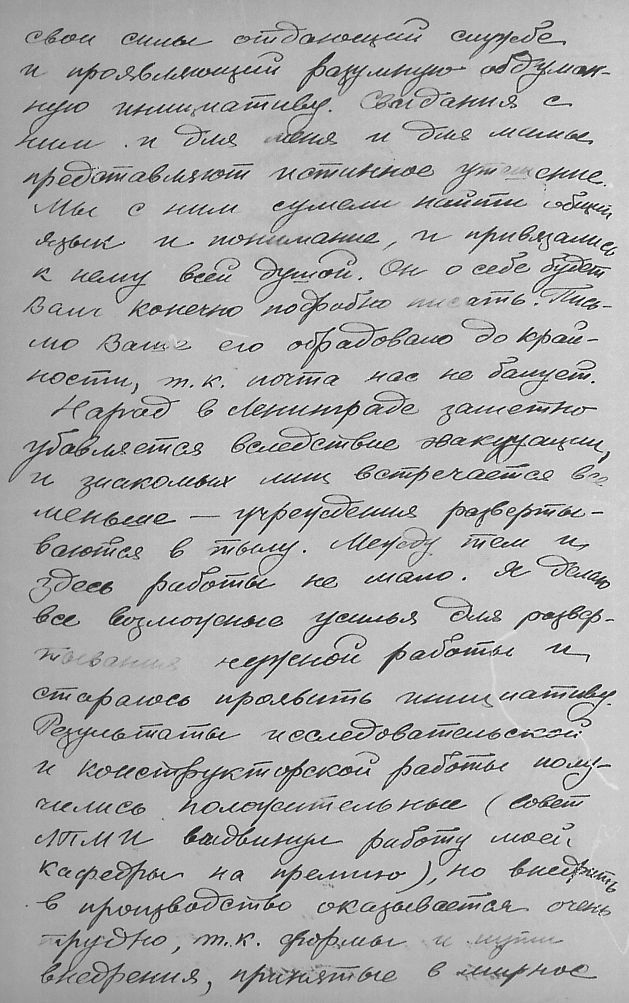 свои силы отдающий службе
и проявляющий разумную обдуман-
ную инициативу. Свидания с
ним и для меня и для мамы
представляют истинное утешение.
Мы с ним сумели найти общий
язык и понимание, и привязались
к нему всей душой. Он о себе будет
Вам конечно подробно писать. Пись-
мо Ваше его обрадовало до край-
ности, т.к. почта нас не балует.
Народ в Ленинграде заметно
убавляется вследствие эвакуации,
и знакомых лиц встречается все
меньше — учреждения разверты-
ваются в тылу. Между тем и
здесь работы не мало. Я делаю
все возможные усилья для развер-
тывания нужной работы и
стараюсь проявить инициативу.
Результаты исследовательской
и конструкторской работы полу-
чились положительные (совет
ЛТМИ выдвинул работу моей
кафедры на премию), но внедрить
в производство оказывается очень
трудно, т.к. формы и пути
внедрения, принятые в мирное